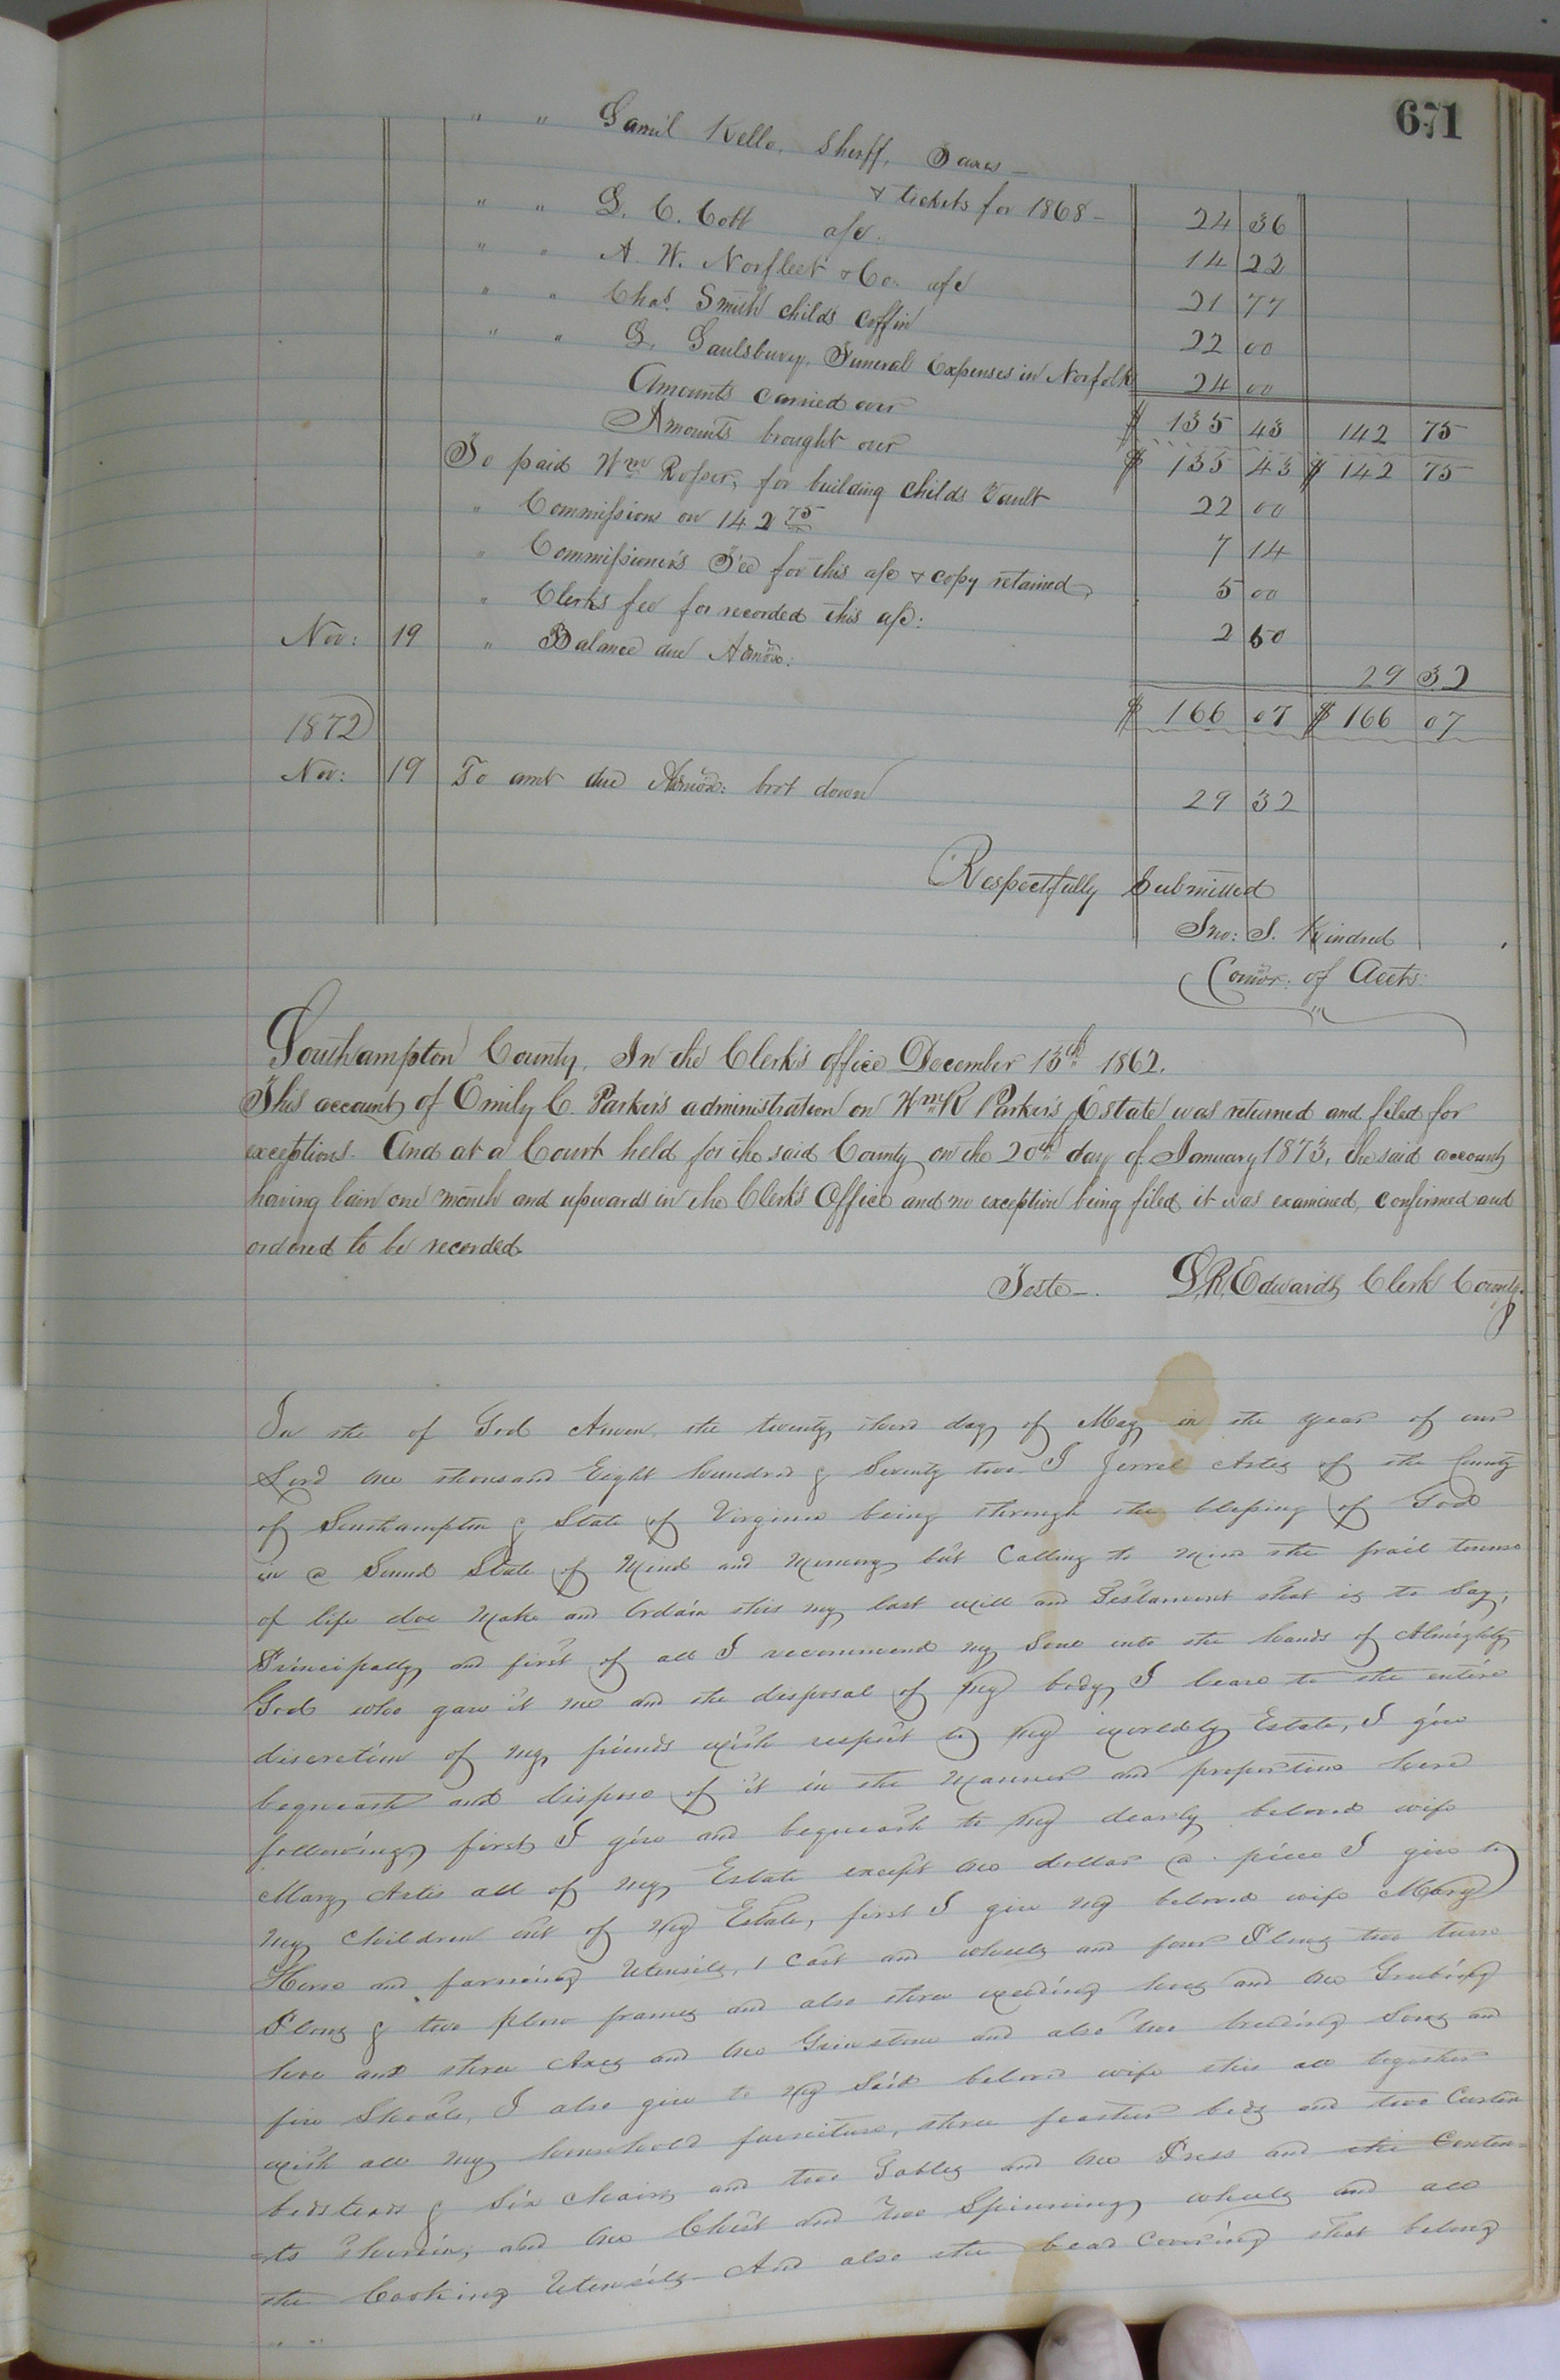 671
" " Saml Kello, Sherff, Taxes —
& tickets for 1868 — 24 36
" " G. C. Cobb a/c. 14 22
" " A. W. Norfleet & Co. a/c 21 77
" " Chas. Smith childs coffin 22 00
" " Saulsbury, Funeral Expenses in Norfolk 24 00
Amounts carried over $ 135 43 142 75
Amounts brought over $ 135 43 $ 142 75
To paid Wm Rosser, for building childs Vault 22 00
" Commissions on 142 75 7 14
" Commissioner's Fee for this a/c & copy retained, 5 00
" Clerks fee for recorded this a/c: 2 50
Nov: 19 " Balance due Admōx: 29 32
$ 166 07 $ 166 07
1872
Nov: 19 To amt due Admōx: brot down 29 32
Respectfully Submitted
Jno: S. Kindred
Comōr: of Accts:
Southampton County, In the Clerk's office December 13th 1862.
This account of Emily C. Parker's administration on Wm R Parker's Estate was returned and filed for
exceptions. And at a Court held for the said County on the 20th day of January 1873, the said account
having lain one month and upwards in the Clerk's Office and no exception being filed it was examined, confirmed and
ordered to be recorded.
Teste —. L. R. Edwards Clerk County.
In the of God Amen, the twenty third day of May in the year of our
Lord one thousand Eight hundred & Seventy two I Jerrel Artis of the County
of Southampton & State of Virginia being through the blessing of God
in a Sound State of Mind and Memory but Calling to mind the frail tenure
of life doe Make and Ordain this my last will and Testament that is to Say,
Principally and first of all I recommend my Soul into the hands of Almighty
God who gave it me and the disposal of my body I leave to the entire
discretion of my friends with respect to my worldly Estate, I give
bequeath and dispose of it in the Manner and proportion here
following, first I give and bequeath to my dearly beloved wife
Mary Artis all of my Estate except one dollar a piece I give to
my children out of my Estate, first I give my beloved wife Mary
Horse and farming Utensils, 1 Cart and wheels and four Plows two turn
Plows & two plow frames and also three weeding hoes and one Grubing
hoe and three Axes and one Grinstone and also two breeding Sows and
five Shoats, I also give to my Said beloved wife this all together
with all my household furniture, three feather beds and two Curten
bedsteads & Six Chairs and two Tables and one Press and the Conten=
=ts therein, and one Chest and two Spinning wheels and all
the Cooking Utensils And also the bead Covering that belong